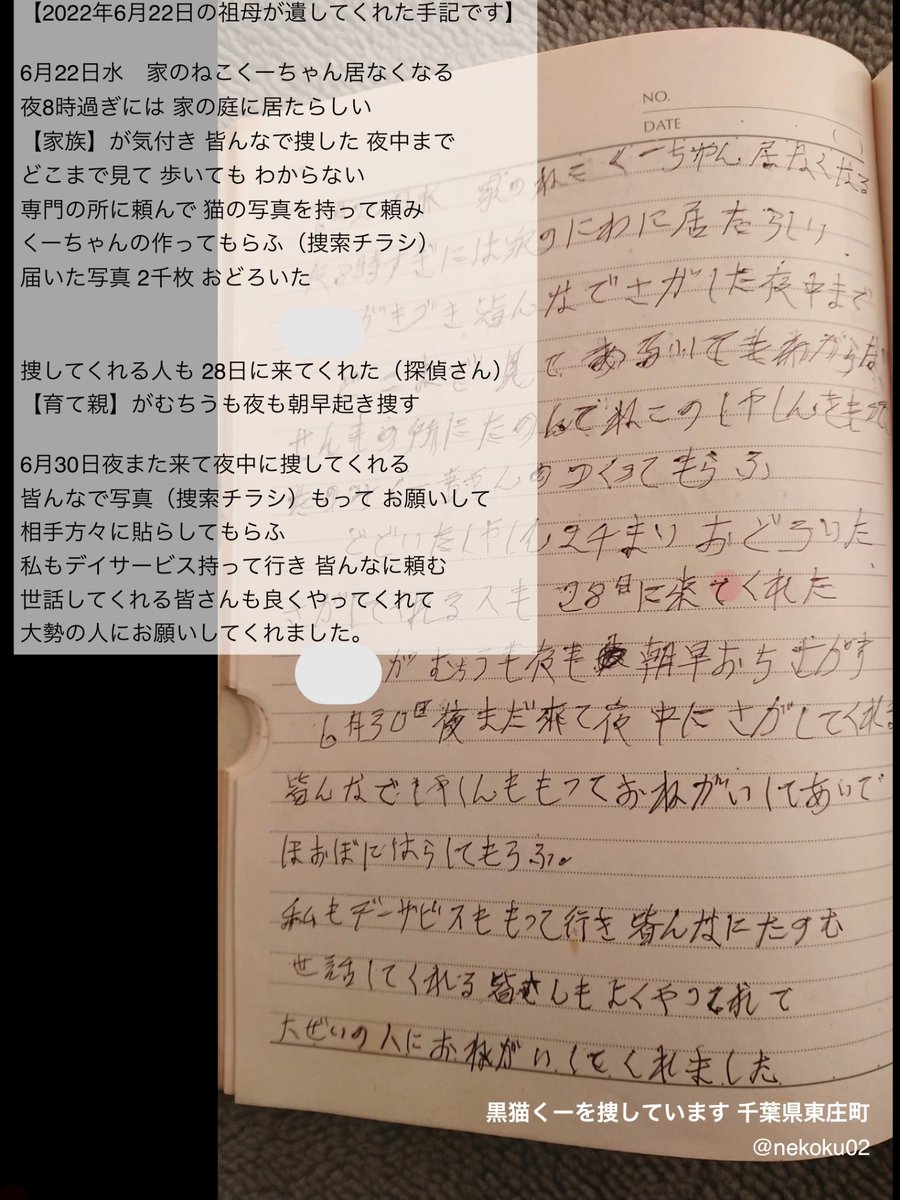 【2022年6月22日の祖母が遺してくれた手記です】
6月22日水　家のねこくーちゃん居なくなる
夜8時過ぎには 家の庭に居たらしい
【家族】が気付き 皆んなで捜した 夜中まで
どこまで見て 歩いても わからない
専門の所に頼んで 猫の写真を持って頼み
くーちゃんの作ってもらふ（捜索チラシ）
届いた写真 2千枚 おどろいた
捜してくれる人も 28日に来てくれた（探偵さん）
【育て親】がむちうも夜も朝早起き捜す
6月30日夜また来て夜中に捜してくれる
皆んなで写真（捜索チラシ）もって お願いして
相手方々に貼らしてもらふ
私もデイサービス持って行き 皆んなに頼む
世話してくれる皆さんも良くやってくれて
大勢の人にお願いしてくれました。
NO.
DATE
水 家のねこくーちゃん居なくなる
8時すぎには家のにわに居たらしい
がきづき皆んなでさがした夜中まで
見て あるいても
せんもの所にたのんでねこのしやしんをも
ちゃんのつくってもらふ
とどいたしやしん2千まい おどろいた
さがしてくれる人も 28日に来てくれた
がむちうも夜も 朝早おきさがす
6月30日夜まだ来て夜中にさがしてくれる
皆んなでしやしんももっておねがいしてあいで
ほおぼにはらしてもらふ。
私もデーサビスももって行き皆んなにたのむ
世話してくれる皆さしもよくやってくれて
大ぜいの人におねがいしてくれました
黒猫くーを捜しています 千葉県東庄町
@nekoku02